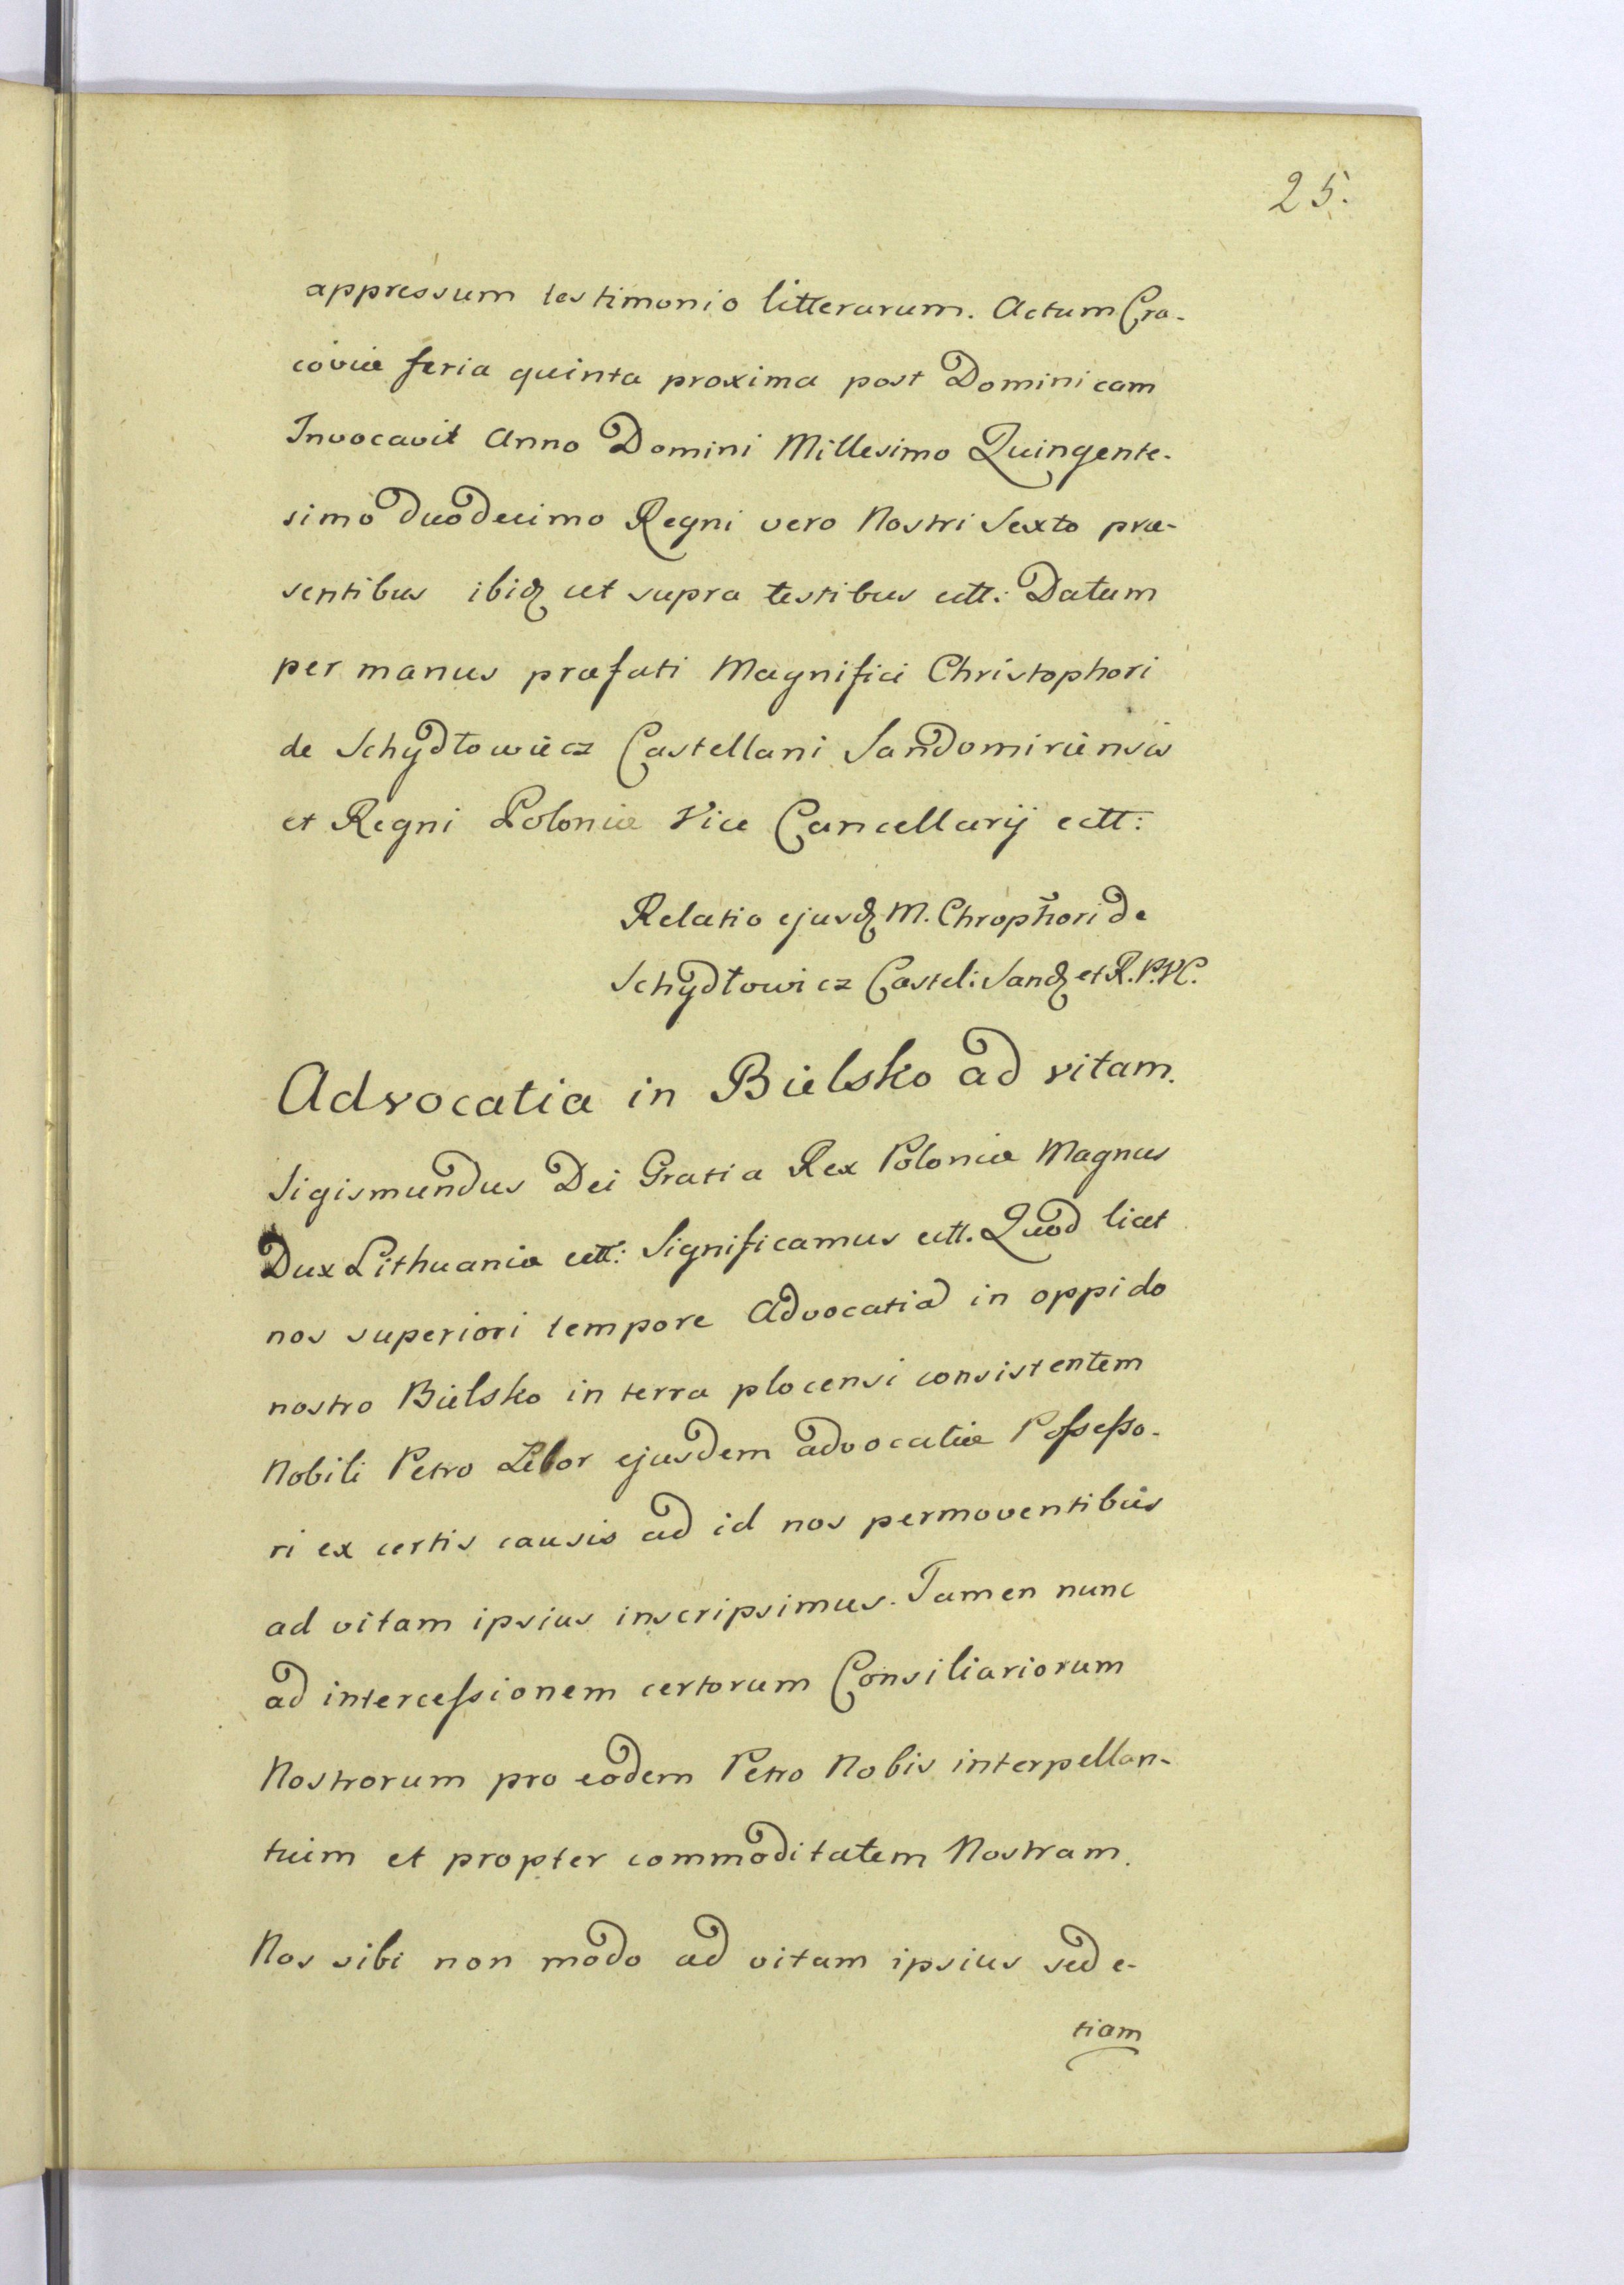 25.
appressum testimonio litterarum. Actum Cra-
coviæ feria quinta proxima post Dominicam
Invocavit Anno Domini Millesimo Quingente-
simo duodecimo Regni vero Nostri Sexto præ-
sentibus ibiq ut supra testibus ett: Datum
per manus præfati Magnifici Christophori
de Schydłowiecz Castellani Sandomiriensis
et Regni Poloniæ Vice Cancellarij ectt:
Relatio ejusq M. Chrophori de
Schydłowicz Castel: Sanq et R. P. V C.
Advocatia in Bielsko ad vitam.
Sigismundus Dei Gratia Rex Poloniæ Magnus
Dux Lithuaniæ ett: Significamus ett. Quod licet
nos superiori tempore Advocatia in oppido
nostro Bielsko in terra plocensi consistentem
Nobili Petro ejusdem advocatiæ Poſseſso-
ri ex certis causis ad id nos permoventibus
ad vitam ipsius inscripsimus. Tamen nunc
ad interceſsionem certorum Consiliariorum
Nostrorum pro eodem Petro Nobis interpellan-
tuim et propter commoditatem Nostram.
Nos sibi non modo ad vitam ipsius sed e-
tiam